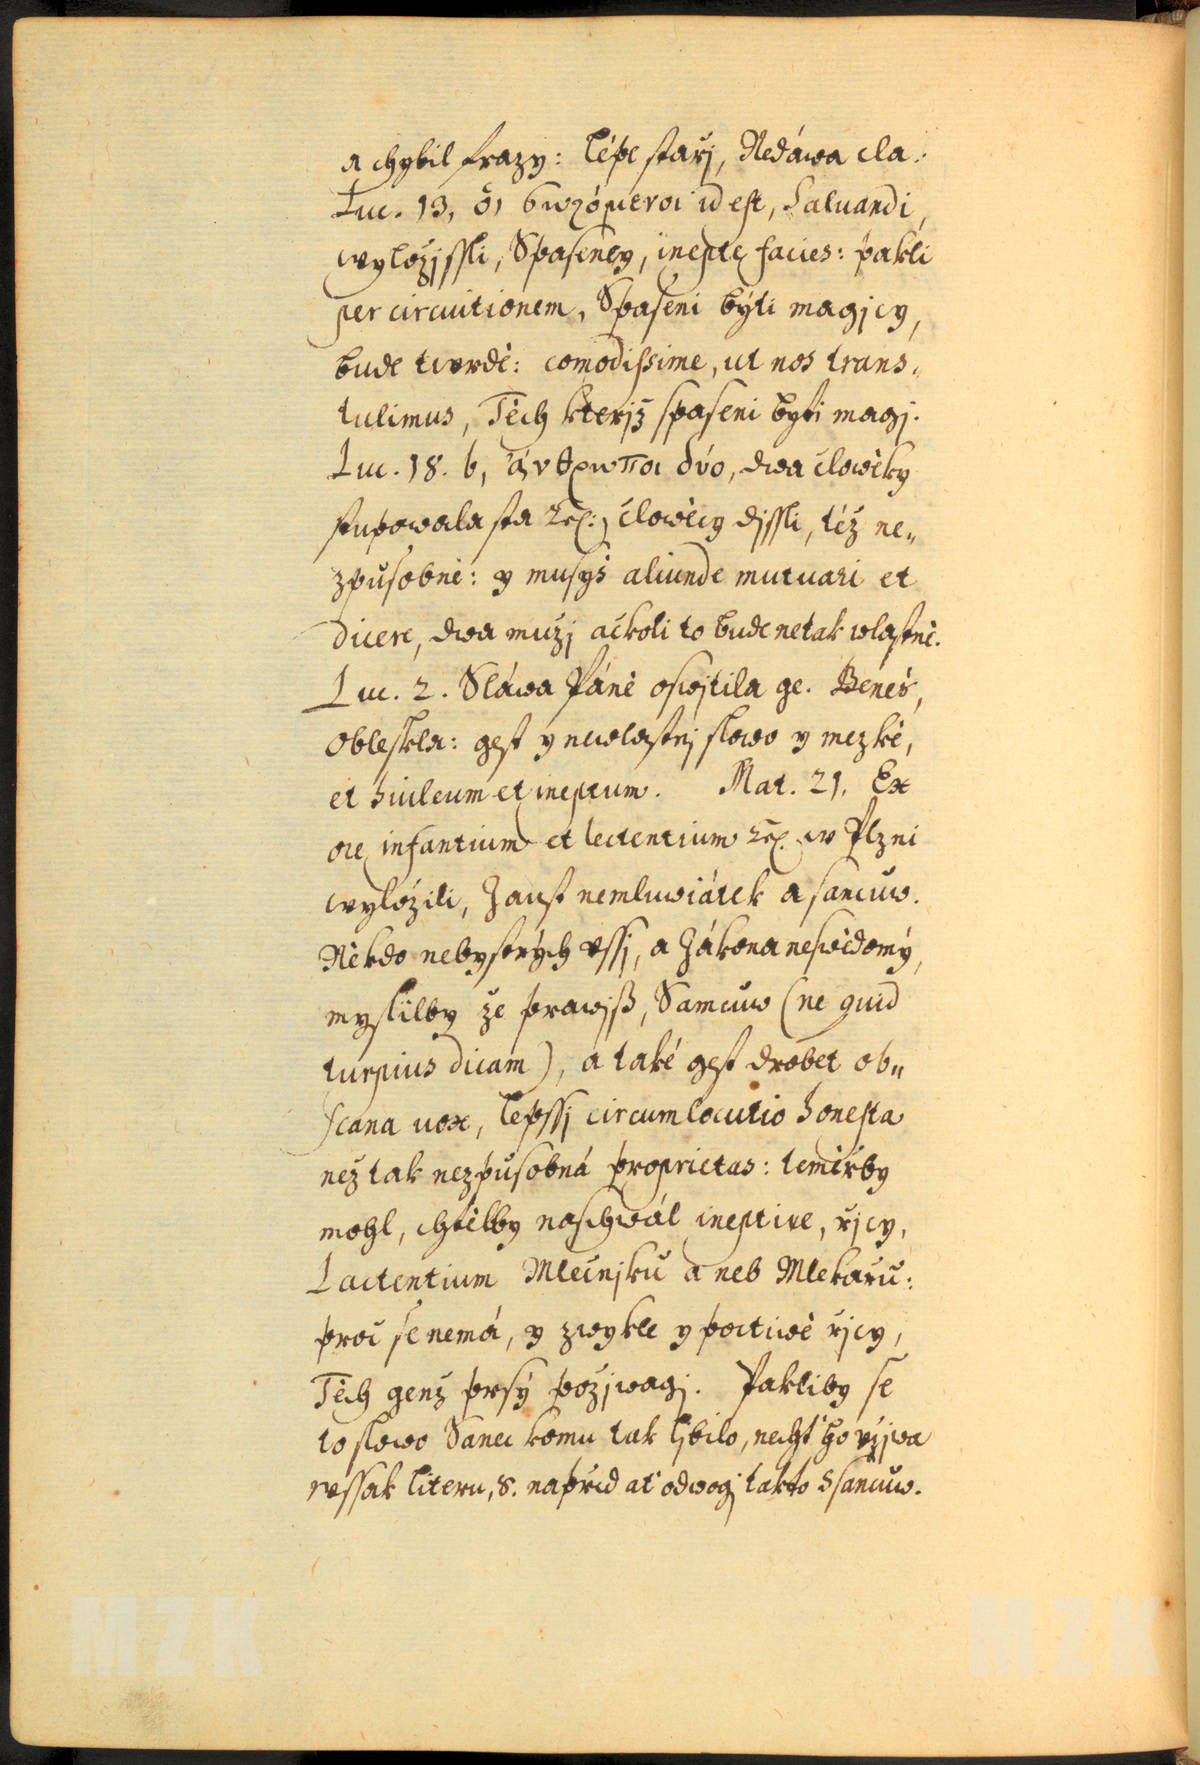 a chybil frazy: lépe stařj, Nedáwa cla.
Luc. 13, ὁι σωζόμενοι id est, Saluandi,
wyložjssli, Spaseney, ineptę facies: pakli
per circuitionem, Spaseni býti magjcy,
bude twrdě: comodißime, ut nos trans„
tulimus, Těch kterjž spaseni byti magj.
Luc. 18. b, ἄνθρωποι δύο, dwa člowěky
stupowala sta etc: člowěcy djssli, též ne„
způsobně: y musyš aliunde mutuari et
dicere, dwa mužj ačkoli to bude netak wlastně.
Luc. 2. Sláwa Páně oswjtila ge. Beneš,
obleskla: gest y newlastnj slowo y mezké,
et hiuleum et ineptum. Mat. 21. Ex
orę infantium et lectentium etc. w Plzni
wyložili, Z aust nemluwiátek a sancůw.
Někdo nebystrých vssj, a Zákona neswědomý,
myslilby že prawjß, Samcůw (ne quid
turpius dicam), a také gest drobet ob„
scana uox, lepssj circumlocutio honesta
než tak nezpůsobná proprietas: teměřby
mohl, chtělby naschwál ineptire, řjcy,
Lactentium Mlečnjků a neb Mlekařů:
proč se nemá, y zwykle y poctiwě řjcy,
Těch genž prsý požjwagj. Pakliby se
to slowo Sanec komu tak ljbilo, nechť ho vžjwa
wssak literu, s. napřed ať odwogj takto Ssancůw.
MZK
MZK